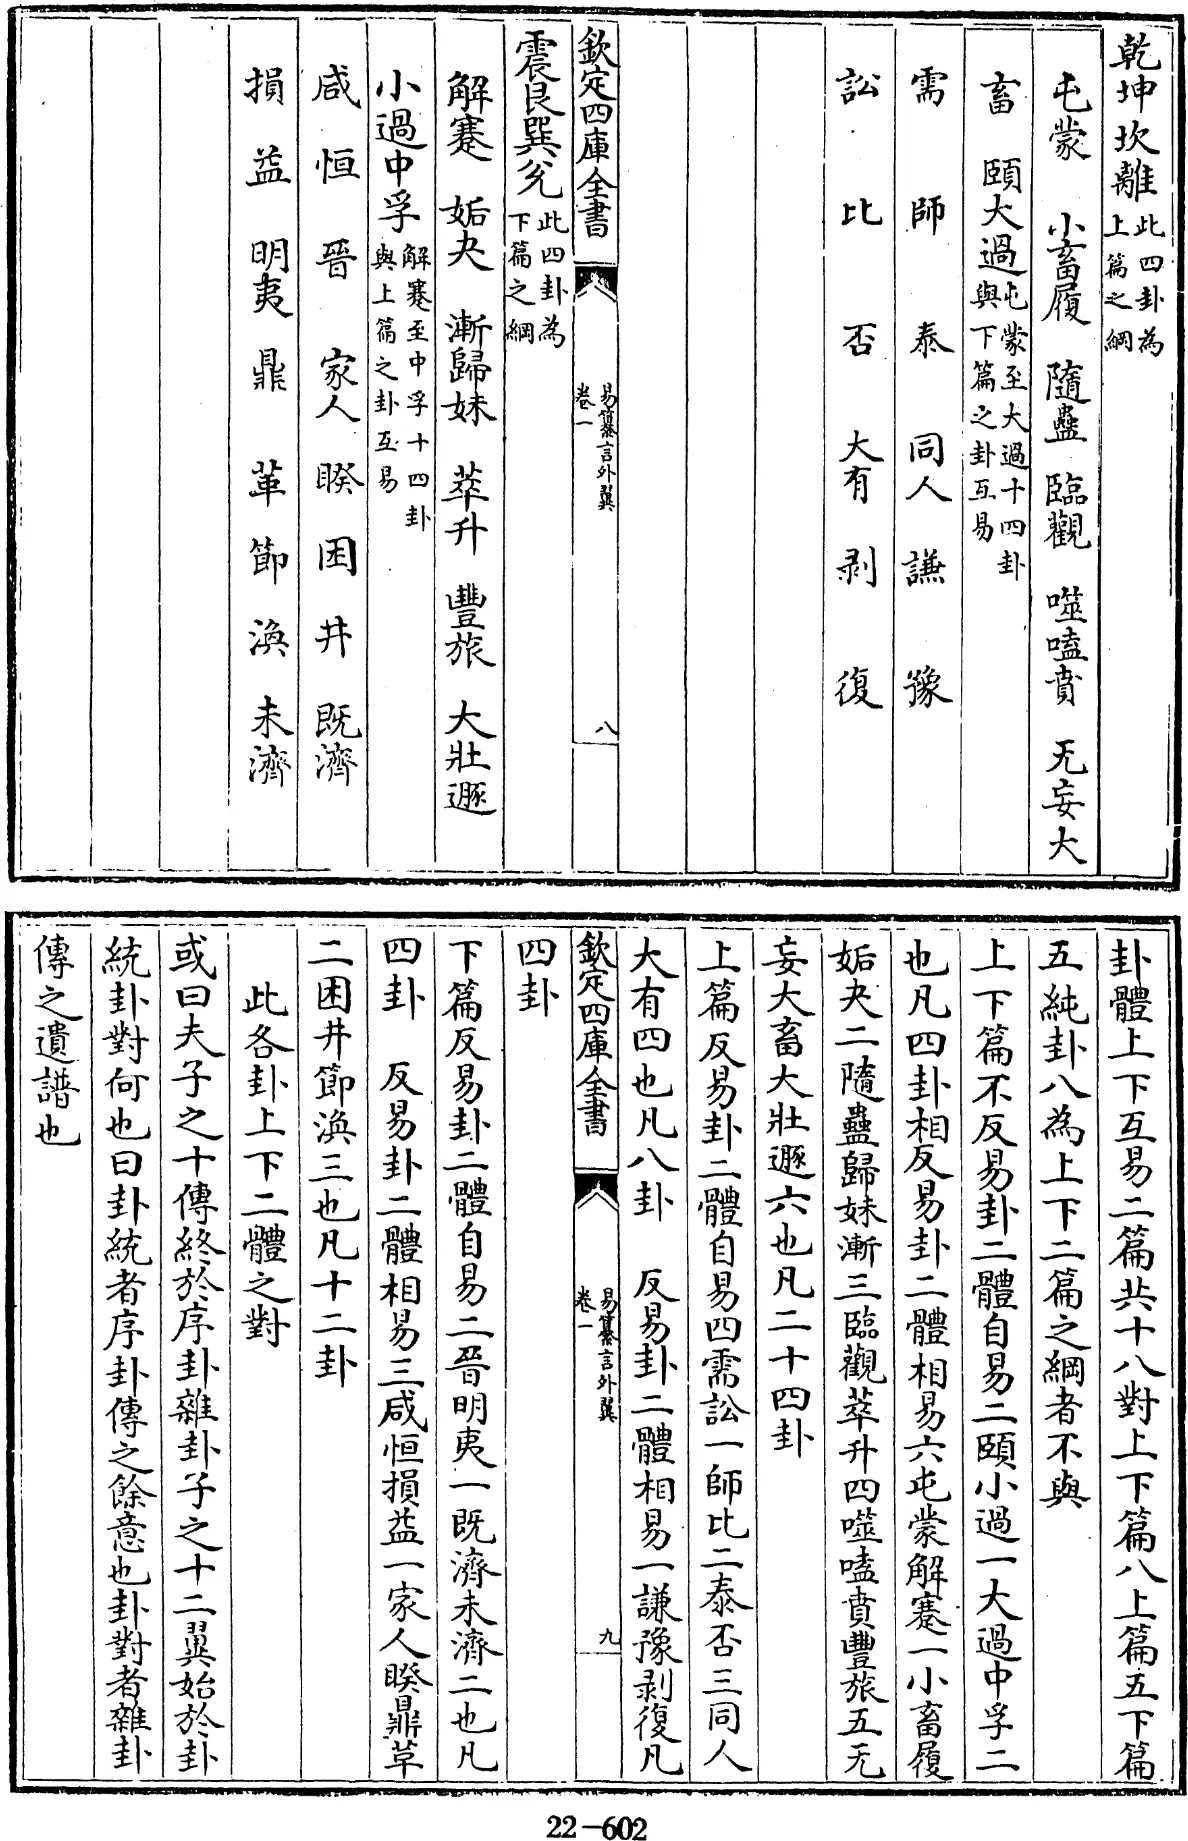 乾坤坎離此四卦為上篇之綱
屯蒙　小畜履　隨蠱　臨觀　噬嗑賁　无妄大
畜　頤大過屯蒙至大過十四卦與下篇之卦互易
需　師　泰　同人　謙　豫
訟　比　否　大有　剥　復
欽定四庫全書
易纂言外翼
卷一
八
震艮巽兊此四卦為下篇之綱
解蹇　姤夬　漸歸妹　萃升　豐旅　大壯遯
小過中孚解蹇至中孚十四卦與上篇之卦互易
咸　恒　晉　家人　睽　困　井　既濟
損　益　明夷　鼎　革　節　渙　未濟
卦體上下互易二篇共十八對上下篇八上篇五下篇
五純卦八為上下二篇之綱者不與
上下篇不反易卦二體自易二頤小過一大過中孚二
也凡四卦相反易卦二體相易六屯蒙解蹇一小畜履
姤夬二隨蠱歸妹漸三臨觀萃升四噬嗑賁豐旅五无
妄大畜大壯遯六也凡二十四卦
上篇反易卦二體自易四需訟一師比二泰否三同人
大有四也凡八卦　反易卦二體相易一謙豫剥復凡
欽定四庫全書
易纂言外翼
卷一
九
四卦
下篇反易卦二體自易二晉明夷一既濟未濟二也凡
四卦　反易卦二體相易三咸恒損益一家人睽鼎革
二困井節渙三也凡十二卦
此各卦上下二體之對
或曰夫子之十傳終於序卦雜卦子之十二翼始於卦
統卦對何也曰卦統者序卦傳之餘意也卦對者雜卦
傳之遺譜也
22-602